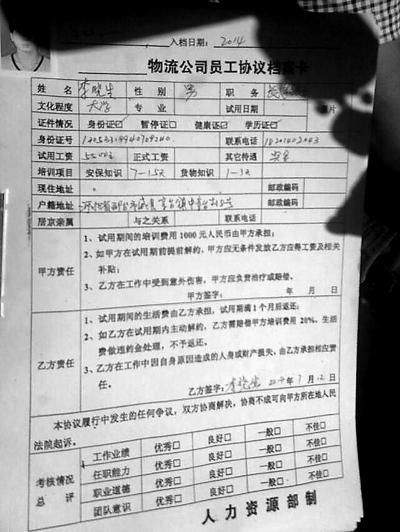 入档日期: 2014
物流公司员工协议档案卡
姓 名 李晓生 性 别 男 职 务
文化程度 大学 专 业 试用日期 片
证件情况 身份证☑ 暂停证□ 健康证☑ 学历证☑
身份证号 联系电话
试用工资 5500元 正式工资 其它待遇
培训项目 安保知识 7-15天 货物知识 1-3天
现住地址 邮政编码
户籍地址 邮政编码
居京亲属 与之关系 联系电话
甲方责任
1、试用期间的培训费用 1000 元人民币由甲方承担;
2、如甲方在试用期前提前解约,甲方应无条件发放乙方应得工资及相关
补贴;
3、乙方在工作中受到意外伤害,甲方应负责治疗或赔偿。
甲方签字: 年 月 日
乙方责任
1、试用期间的生活费由乙方承担,试用期满 1 个月后返还;
2、如乙方在试用期内主动解约,乙方需赔偿甲方培训费用 20%,生活
费做违约金处理,不予返还。
3、乙方在工作中因自身原因造成的人身或财产损失,由乙方承担相应责
任。
乙方签字: 李晓生 2014年7月12日
本协议履行中发生的任何争议,双方协商解决,协商不成可向甲方所在地人民
法院起诉。
考核情况
总 评
工作业绩 优秀□ 良好□ 一般□ 不佳□
任职能力 优秀□ 良好□ 一般□ 不佳□
职业道德 优秀□ 良好□ 一般□ 不佳□
团队意识 优秀□ 良好□ 一般□ 不佳□
人力资源部制